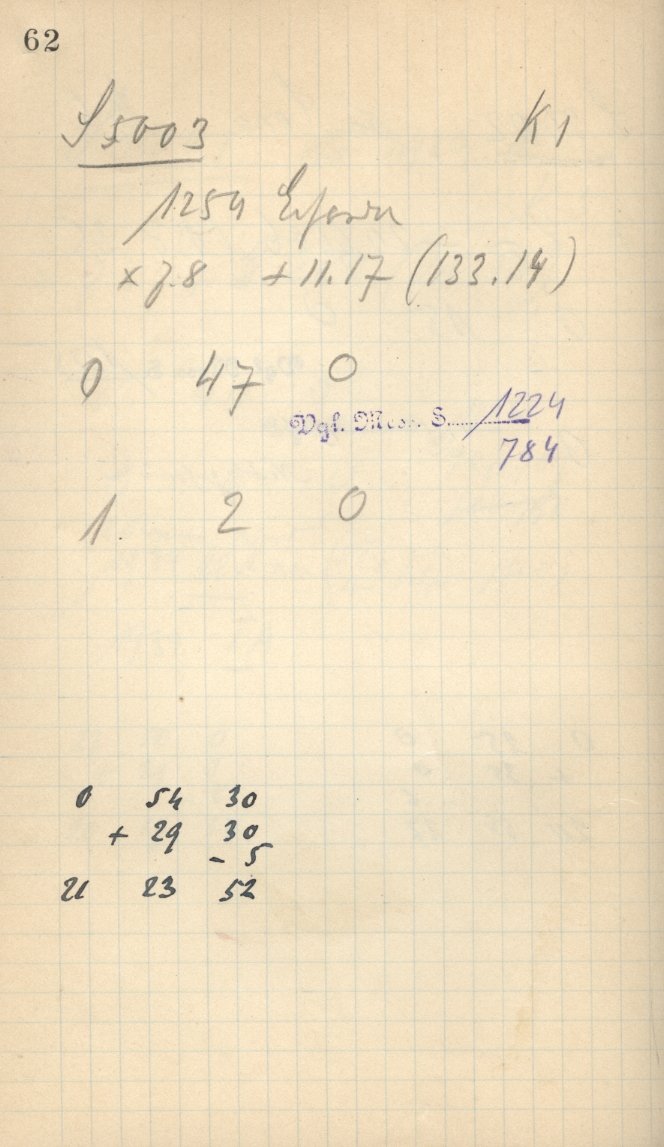 62
S 5003 K1
1254
× 7.8 + 11.17 (133.14)
0 47 0
Vgl. Mess. S. 1224
784
1 2 0
0 54 30
+ 29 30
- 5
21 23 52